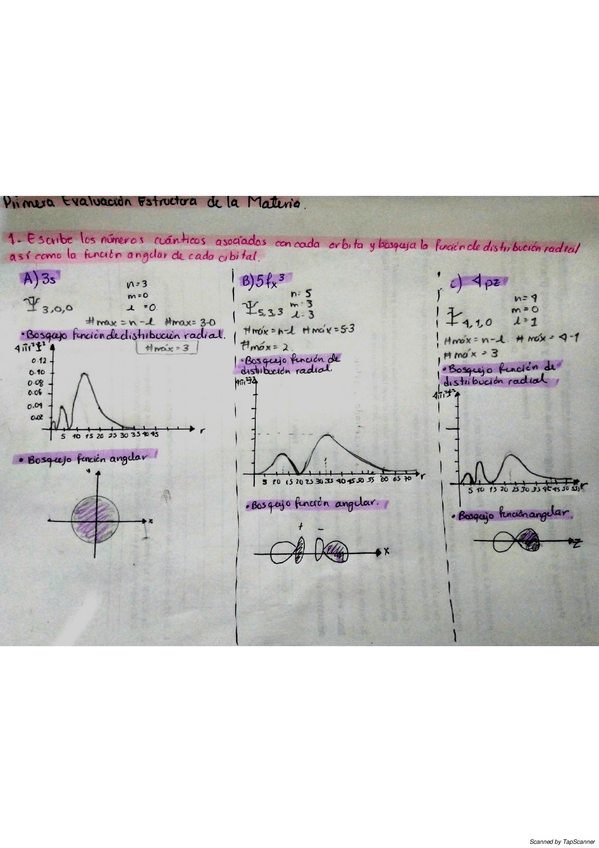 Primera Evaluación Estructura de la Materia.
1.- Escribe los números cuánticos asociados con cada orbita y bosqueja la función de distribución radial
así como la función angular de cada orbital.
A) 3s
n=3
m=0
Ψ3,0,0
l=0
#max = n-l #max= 3-0
• Bosquejo función de distribución radial.
#max = 3
0.12
0.10
0.08
0.06
0.04
0.02
5 10 15 20 25 30 35 40 45
r
• Bosquejo función angular
x
B) 5fx³
n: 5
m: 3
Ψ5,3,3
l: 3
#máx = n-l #máx = 5-3
#máx = 2
• Bosquejo función de
distribución radial.
5 10 15 20 25 30 35 40 45 50 55 60 65 70
r
• Bosquejo función angular.
+ -
x
C) 4pz
n= 4
m= 0
Ψ4,1,0
l= 1
#máx = n-l #máx = 4-1
#máx = 3
• Bosquejo función de
distribución radial
5 10 15 20 25 30 35 40 45 50 55
r
• Bosquejo función angular
z
Scanned by TapScanner